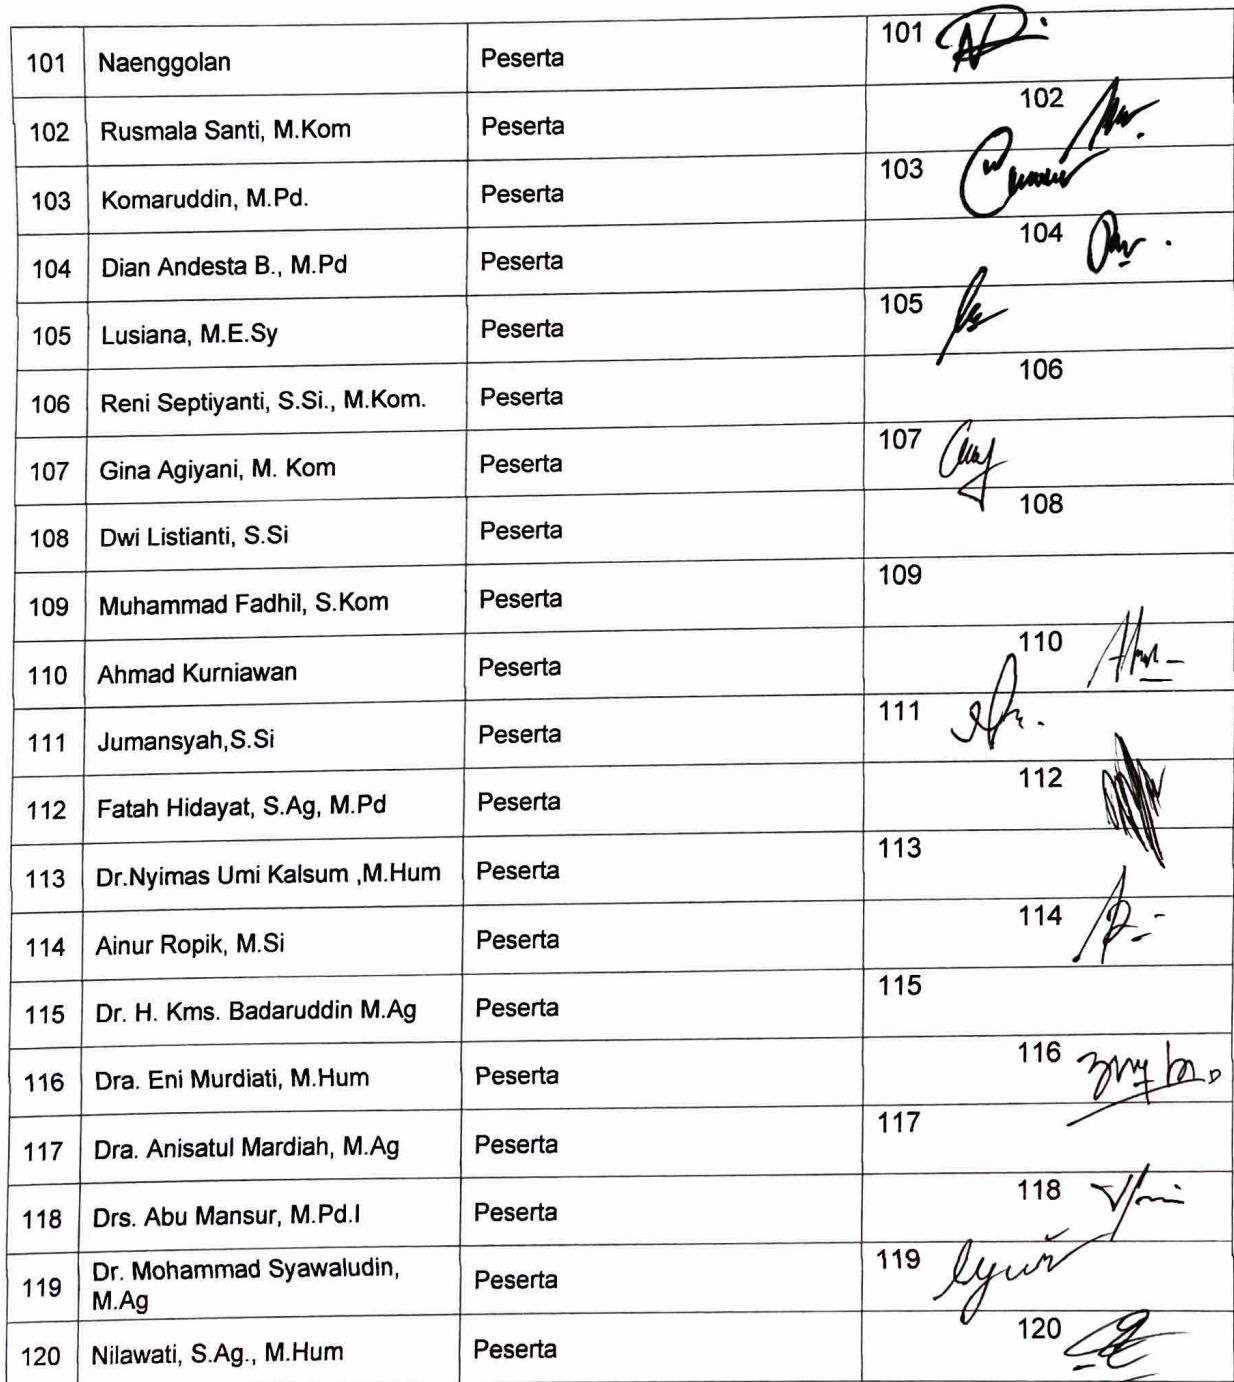 101 Naenggolan Peserta 101
102 Rusmala Santi, M.Kom Peserta 102
103 Komaruddin, M.Pd. Peserta 103
104 Dian Andesta B., M.Pd Peserta 104
105 Lusiana, M.E.Sy Peserta 105
106 Reni Septiyanti, S.Si., M.Kom. Peserta 106
107 Gina Agiyani, M. Kom Peserta 107
108 Dwi Listianti, S.Si Peserta 108
109 Muhammad Fadhil, S.Kom Peserta 109
110 Ahmad Kurniawan Peserta 110
111 Jumansyah,S.Si Peserta 111
112 Fatah Hidayat, S.Ag, M.Pd Peserta 112
113 Dr.Nyimas Umi Kalsum ,M.Hum Peserta 113
114 Ainur Ropik, M.Si Peserta 114
115 Dr. H. Kms. Badaruddin M.Ag Peserta 115
116 Dra. Eni Murdiati, M.Hum Peserta 116
117 Dra. Anisatul Mardiah, M.Ag Peserta 117
118 Drs. Abu Mansur, M.Pd.I Peserta 118
119 Dr. Mohammad Syawaludin, Peserta 119
M.Ag
120 Nilawati, S.Ag., M.Hum Peserta 120